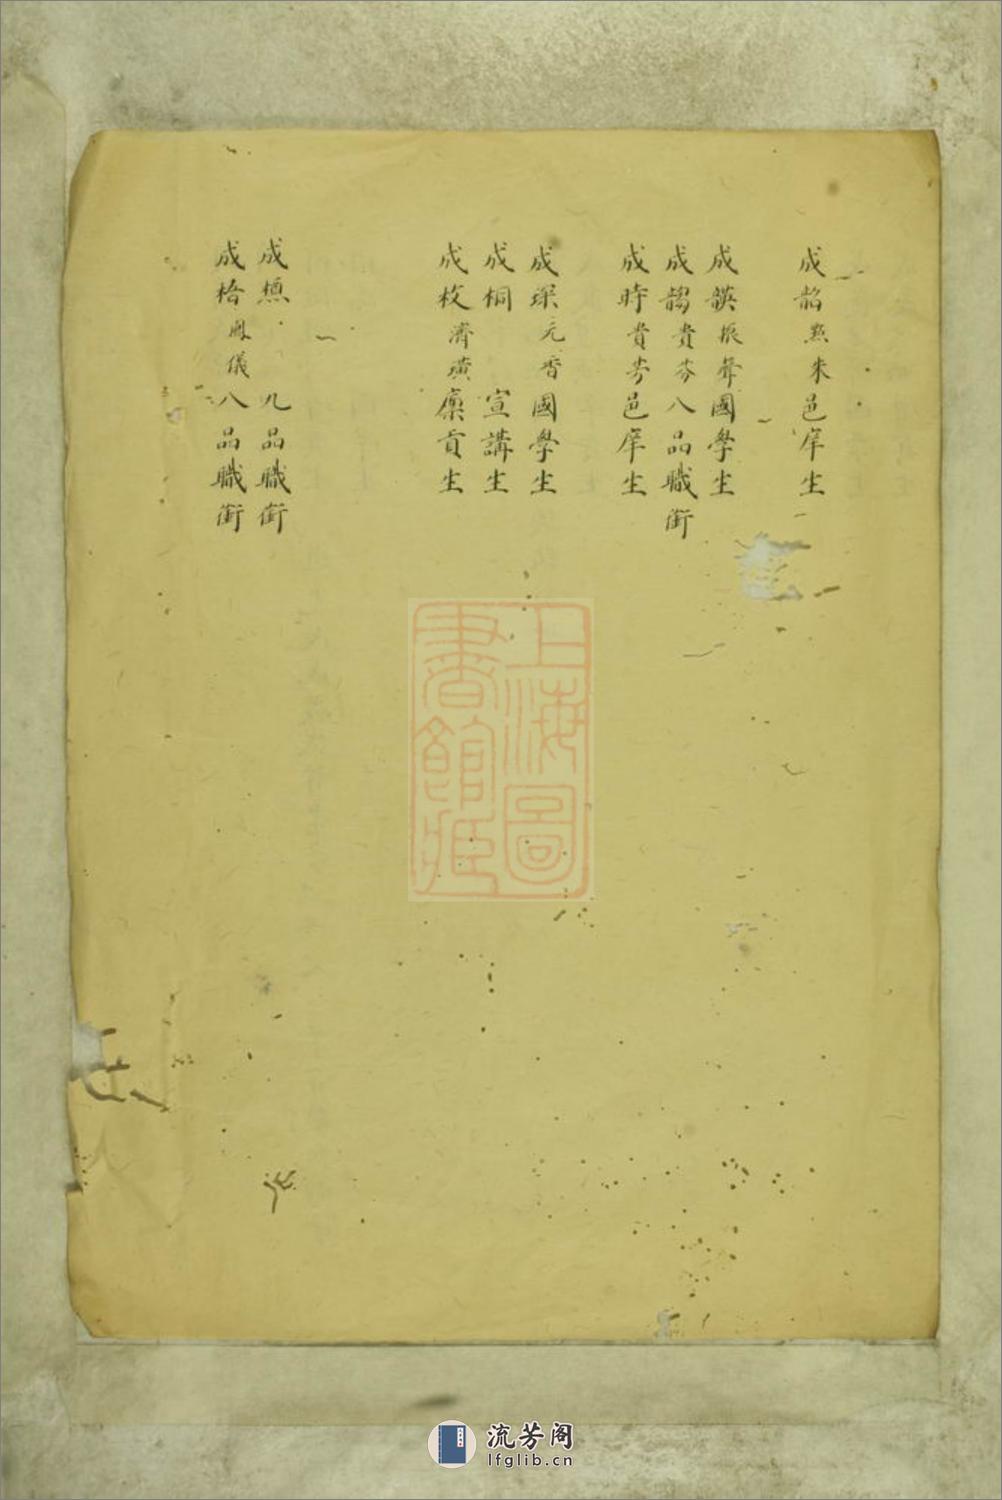 成韶煕来邑庠生
成韺振聲國學生
成韵貴芬八品職銜
成時貴芳邑庠生
成琛元香國學生
成桐 宣講生
成枚濟璜廩貢生
成 九品職銜
成格鳳儀八品職銜
上海圖
書館藏
流芳阁
lfglib.cn